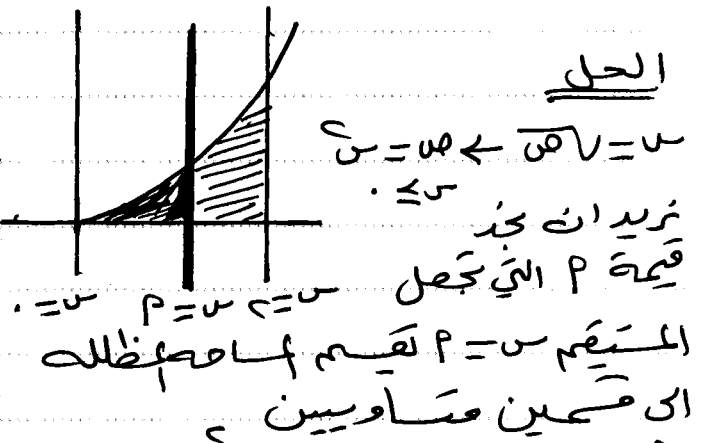 الحل
س = √ص ← ص = س²
س ≥ ٠
نريد ان نجد
قيمة م التي تجعل
س = ٠ س = م س = ٢
المستقيم س = م تقسم المساحة المظلله
الى قسمين متساويين